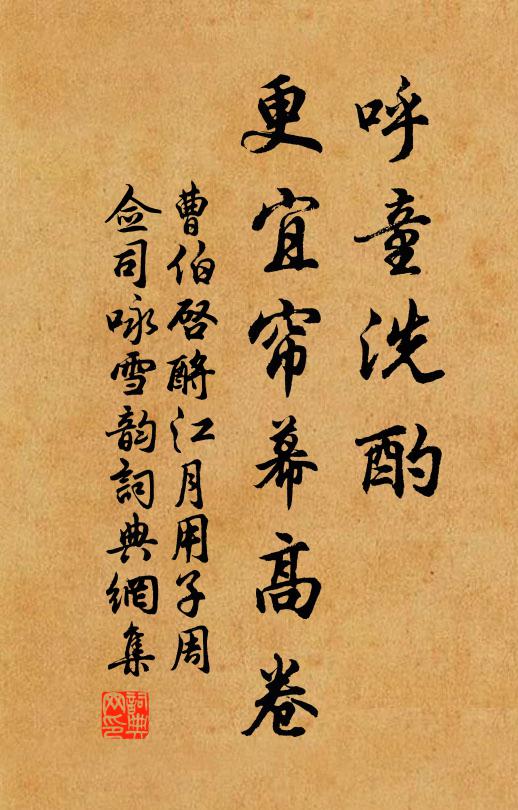 呼童洗酌
更宜帘幕高卷
曹伯啓酹江月用子周
佥司咏雪韵詞典網集
詞典网印